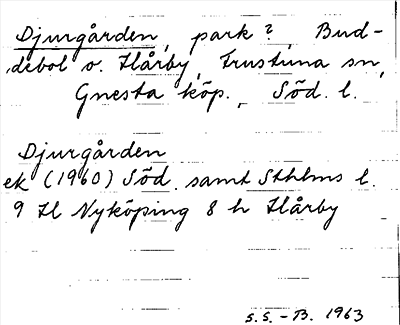 Djurgården, park? Bud-
debol o. Hårby, Frustuna sn,
Gnesta köp., Söd. l.
Djurgården
ek (1960) Söd. samt Sthlms l.
9 H Nyköping 8 h Hårby
S.S. - B. 1963